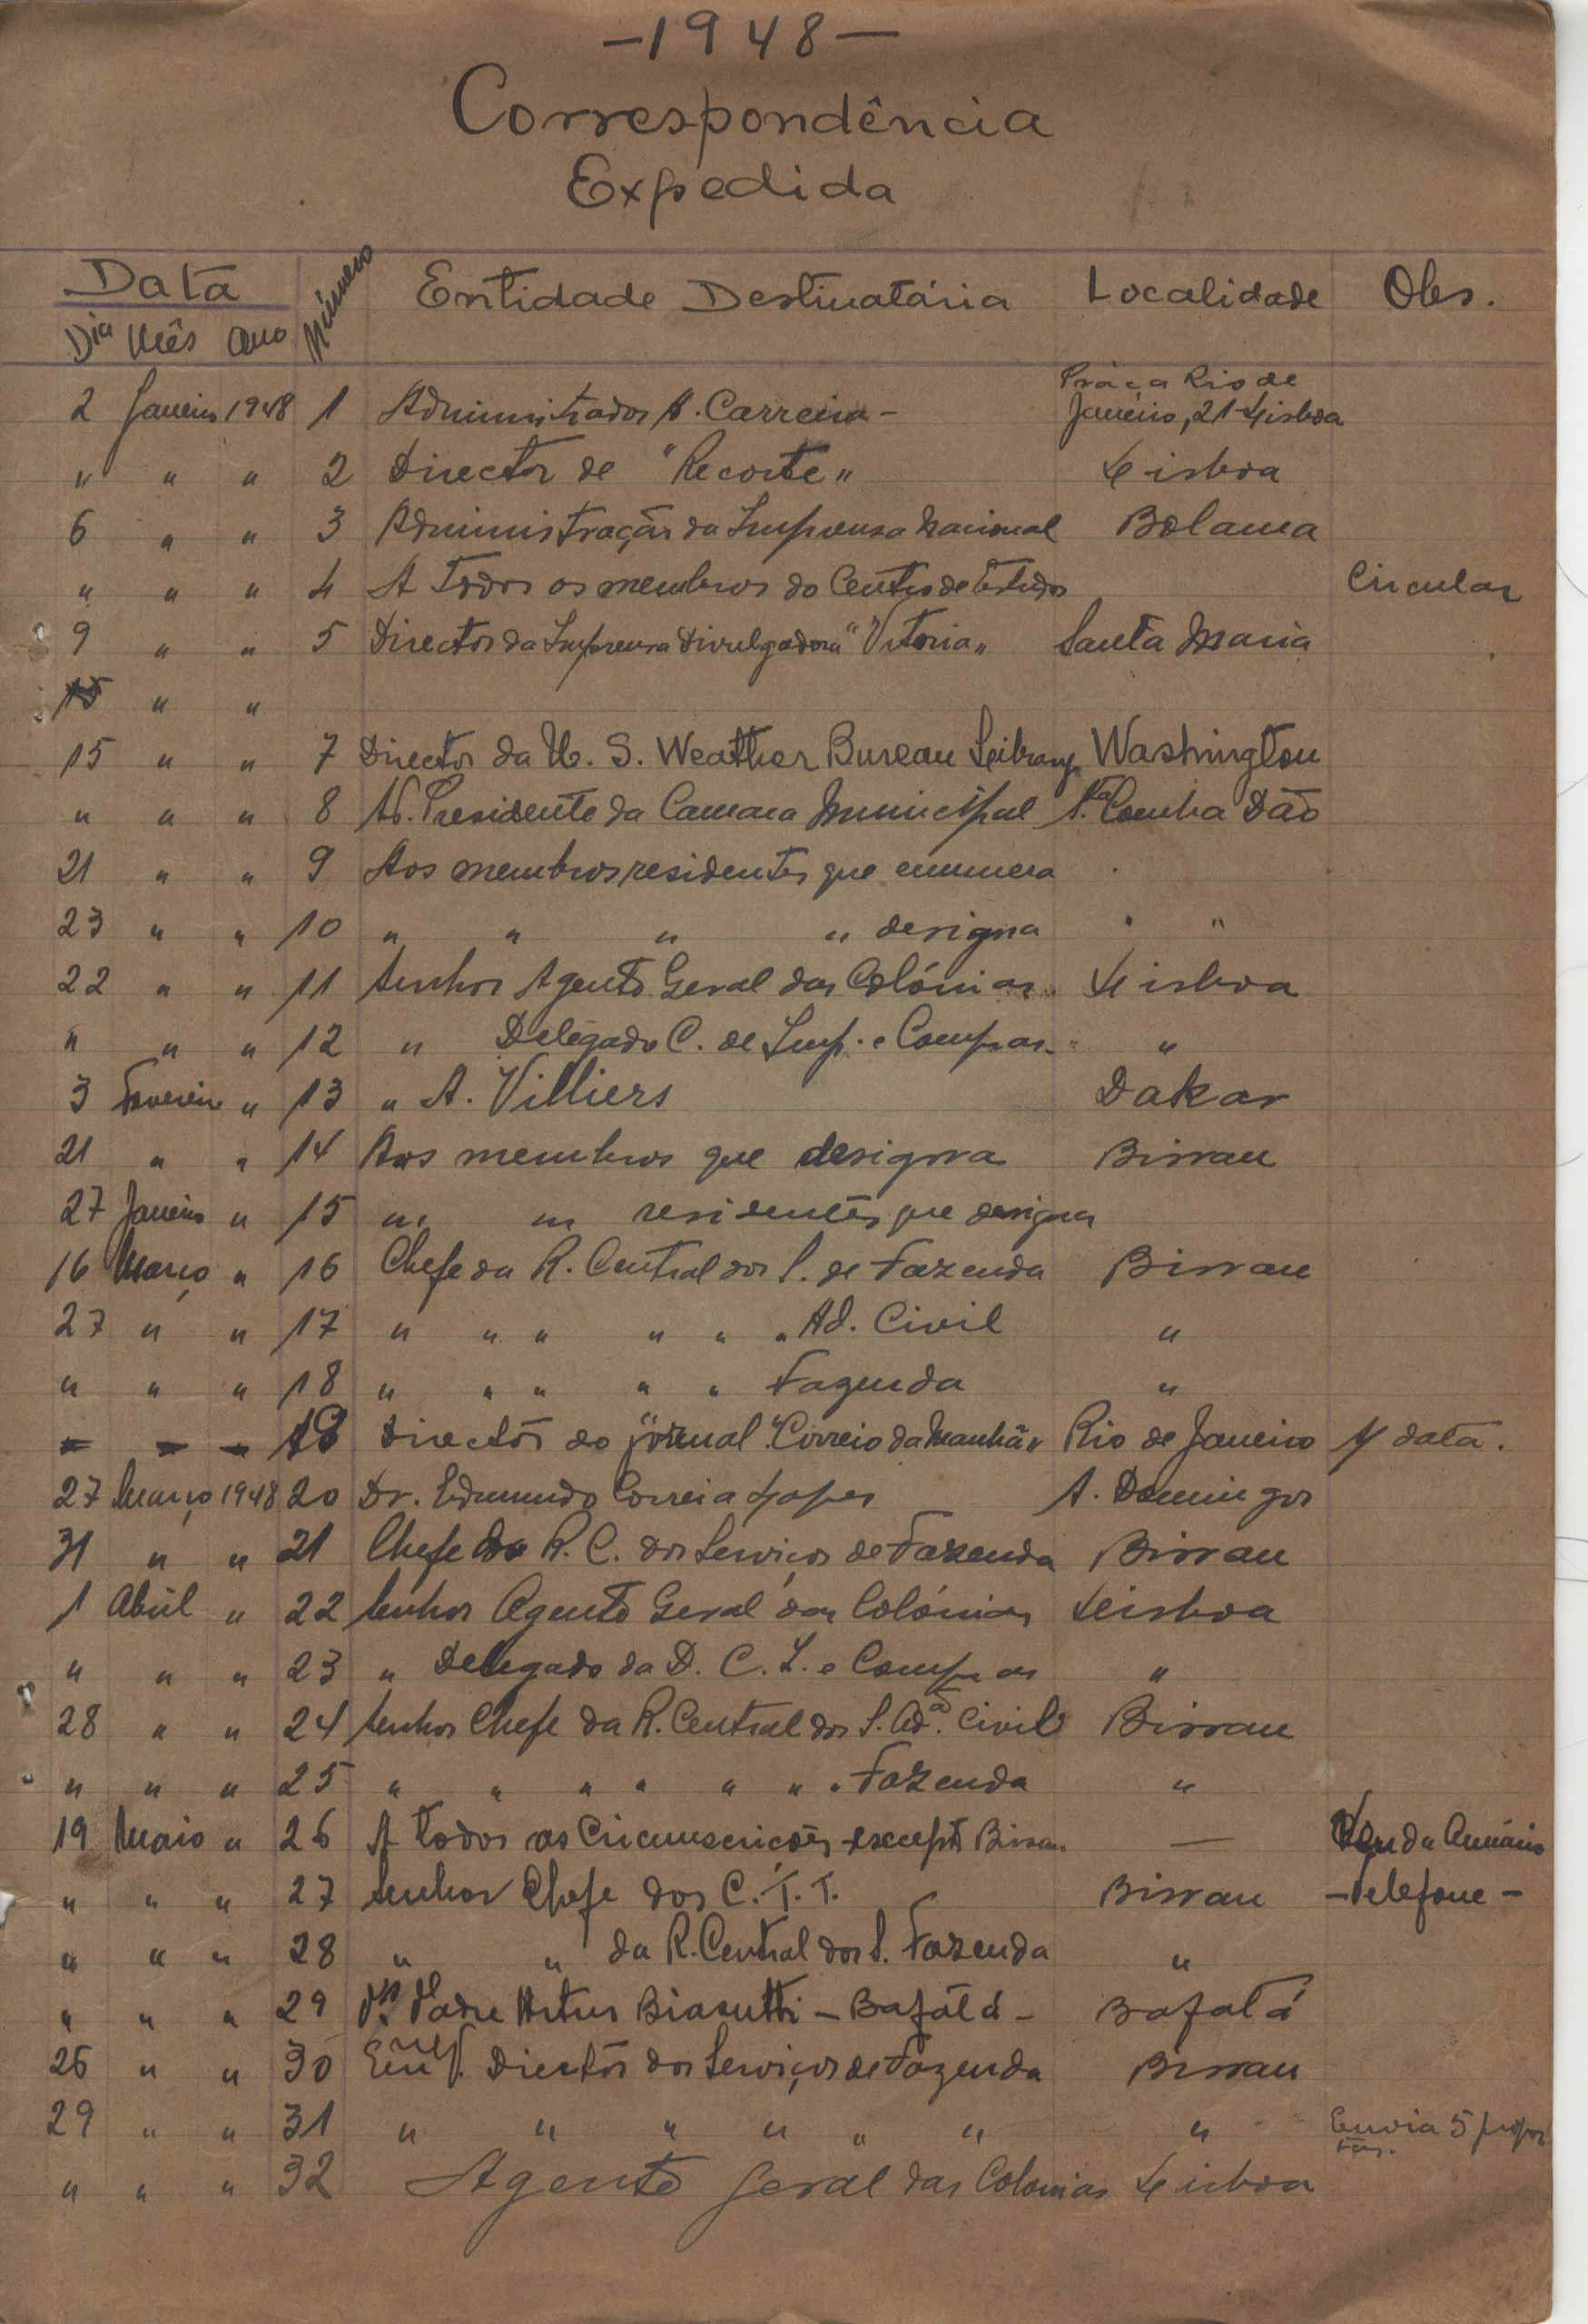 —1948—
Correspondência
Expedida
Data Número Entidade Destinatária Localidade Obs.
Dia Mês Ano
Práça Rio de
2 Janeiro 1948 1 Administrador A. Carreira - Janeiro, 21-Lisboa
" " " 2 Director de "Recorte" Lisboa
6 " " 3 Administração da Imprensa Nacional Bolama
" " " 4 A Todos os membros do Centro de Estudos Circular
9 " " 5 Director da Imprensa Divulgadora "Vitoria" Santa Maria
15 " "
15 " " 7 Director da U. S. Weather Bureau Washington
" " " 8 Presidente da Camara Municipal S.ta Comba Dão
21 " " 9 Aos membros residentes que enumera
23 " " 10 " " " " designa "
22 " " 11 Senhor Agente Geral das Colónias. Lisboa
" " " 12 " Delegado C. de Imp. e Compras "
3 Fevereiro " 13 " A. Villiers Dakar
21 " " 14 Aos membros que designa Bissau
27 Janeiro " 15 " " residentes que designa
16 Março " 16 Chefe da R. Central dos S. de Fazenda Bissau
27 " " 17 " " " " " " Ad. Civil "
" " " 18 " " " " " Fazenda "
- - - 19 Directôr do jornal "Correio da Manhã" Rio de Janeiro s/ data.
27 Março 1948 20 Dr. Edmundo Correia Lopes S. Domingos
31 " " 21 Chefe da R. C. dos Serviços de Fazenda Bissau
1 Abril " 22 Senhor Agente Geral das Colónias Lisboa
" " " 23 " Delegado da D. C. I. e Compras "
28 " " 24 Senhor Chefe da R. Central dos S. Ad.ª Civil Bissau
" " " 25 " " " " " " " Fazenda "
19 Maio " 26 A todas as Circunscrições excepto Bissau — Venda Anuário
" " " 27 Senhor Chefe dos C.T.T. Bissau -Telefone-
" " " 28 " " da R. Central dos S. Fazenda "
" " " 29 Padre Artur Biasutti - Bafátá - Bafatá
26 " " 30 Directôr dos Serviços de Fazenda Bissau
29 " " 31 " " " " " " " Envia 5 propos
tas.
" " " 32 Agente Geral das Colonias Lisboa